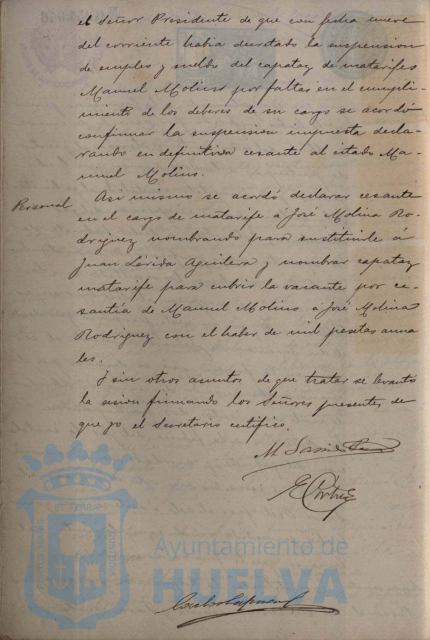 el Señor Presidente de que con fecha nueve
del corriente habia decretado la suspension
de empleo y sueldo del capataz de matarifes
Manuel Molinos por faltas en el cumpli-
miento de los deberes de su cargo se acordó
confirmar la suspension impuesta decla-
rando en definitiva cesante al citado Ma-
nuel Molino.
Personal
Asi mismo se acordó declarar cesante
en el cargo de matarife á José Molina Ro-
driguez nombrando para sustituirle á
Juan Lérida Aguilera y nombrar capataz
matarife para cubrir la vacante por ce-
santía de Manuel Molino á José Molina
Rodriguez con el haber de mil pesetas anua
les.
Y sin otros asuntos de que tratar se levantó
la sesion firmando los Señores presentes de
que yo el Secretario certifico.
M.
E.
Ayuntamiento de
HUELVA